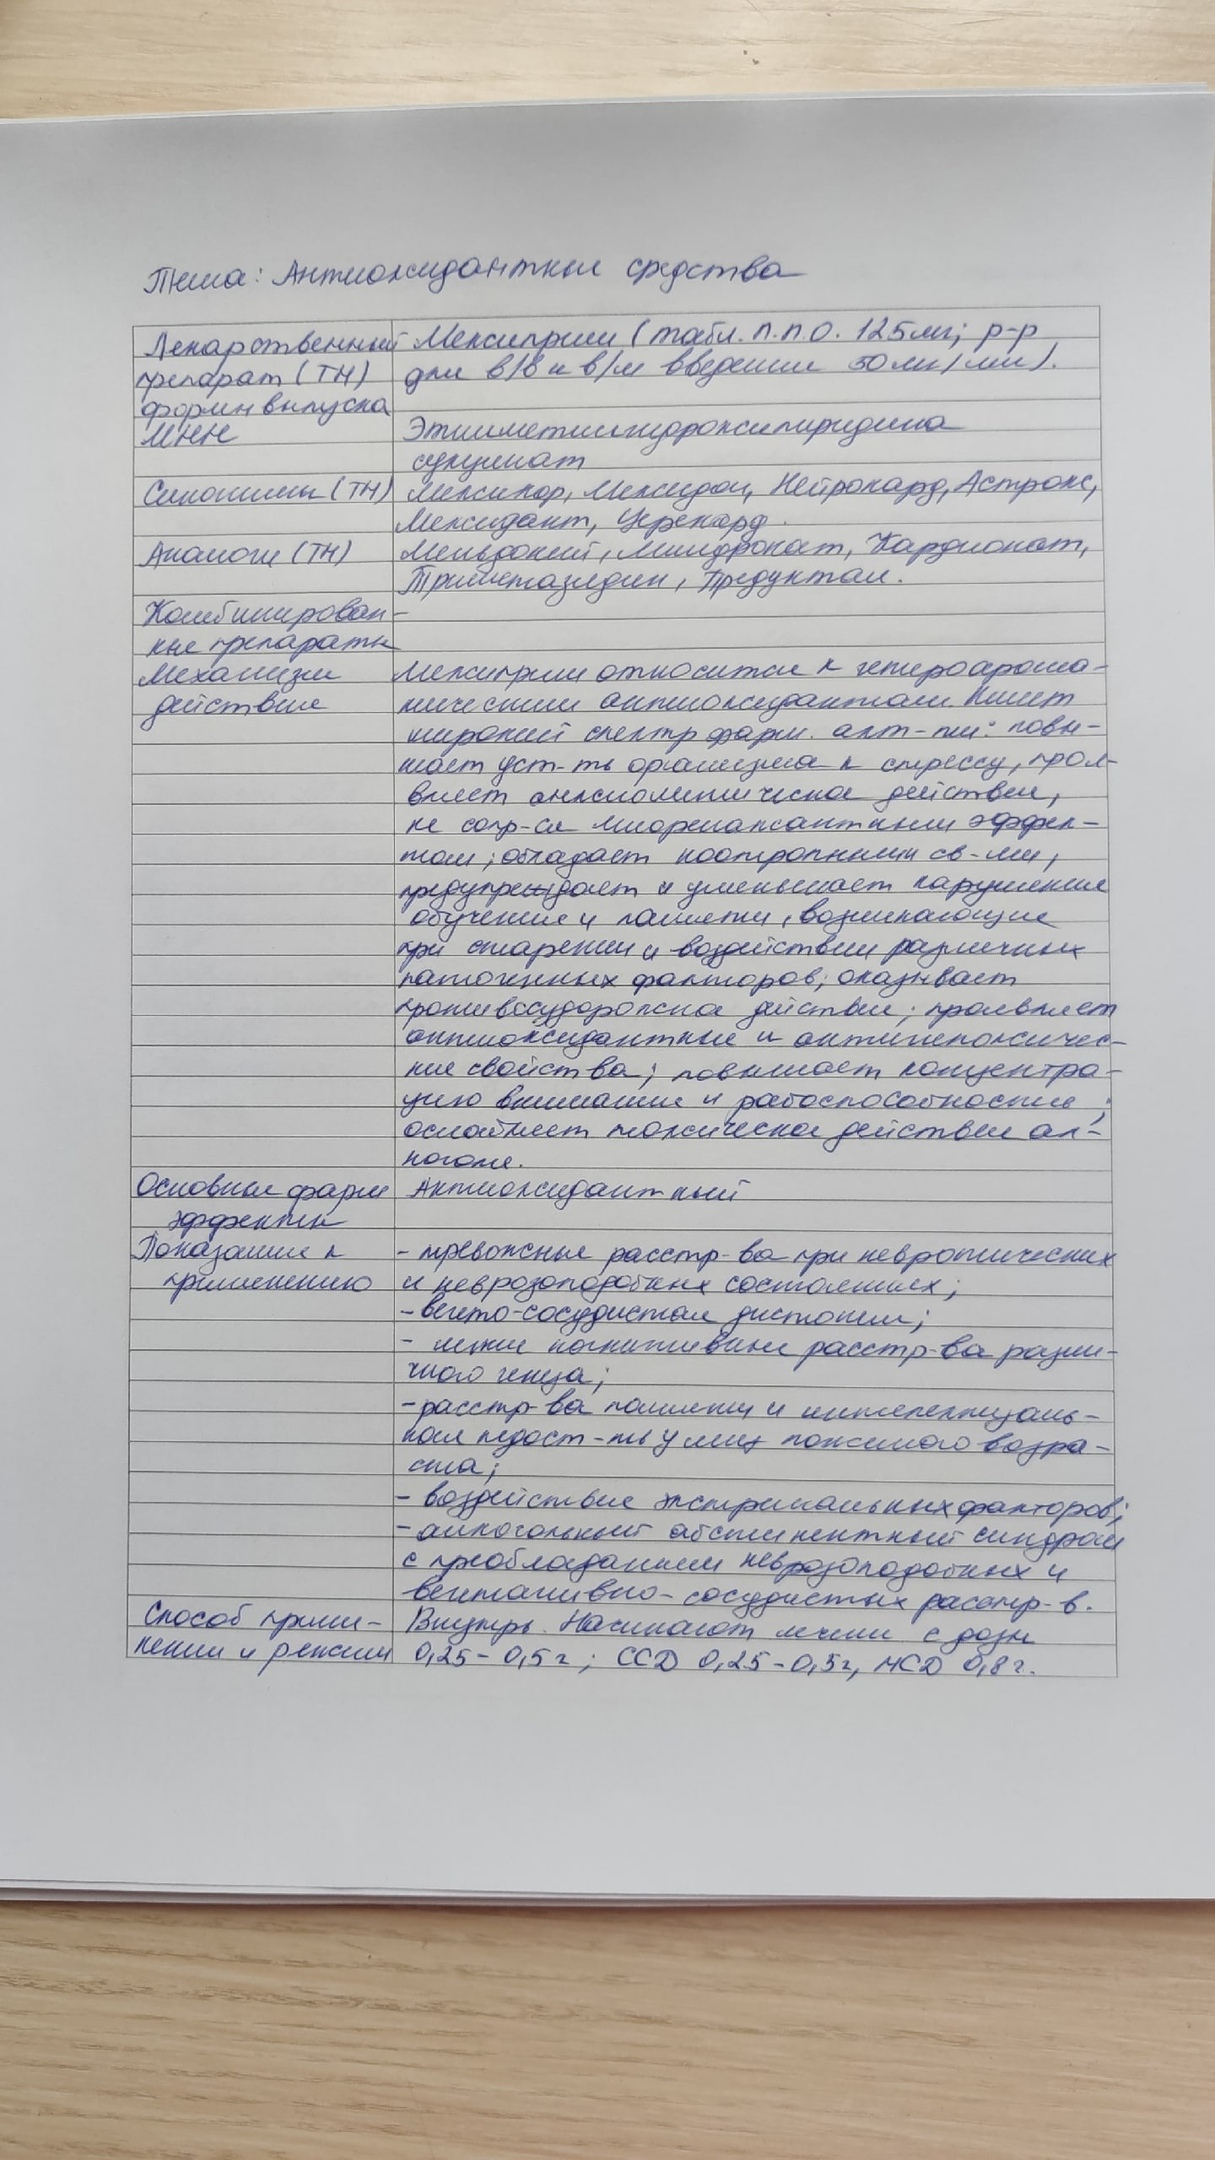 Тема: Антиоксидантные средства
Лекарственный Мексиприм (табл. п.п.о. 125мг; р-р
препарат (ТН) для в/в и в/м введения 50мг/мл).
формы выпуска
МНН Этилметилгидроксипиридина
сукцинат
Синонимы (ТН) Мексикор, Мексидол, Нейрокард, Астрокс,
Мексидант, Церекард.
Аналоги (ТН) Мельдоний, Милдронат, Кардионат,
Триметазидин, Предуктал.
Комбинирован- -
ные препараты
Механизм Мексиприм относится к гетероарома-
действия тическим антиоксидантам. Имеет
широкий спектр фарм. акт-ти: повы-
шает уст-ть организма к стрессу, прояв-
вляет анксиолитическое действие,
не сопр-ся миорелаксантным эффек-
том; обладает ноотропными св-ми,
предупреждает и уменьшает нарушения
обучения и памяти, возникающие
при старении и воздействии различных
патогенных факторов; оказывает
противосудорожное действие; проявляет
антиоксидантные и антигипоксичес-
кие свойства; повышает концентра-
цию внимания и работоспособность;
ослабляет токсическое действие ал-
коголя.
Основные фарм Антиоксидантный
эффекты
Показания к - тревожные расстр-ва при невротических
применению и неврозоподобных состояниях;
- вегето-сосудистая дистония;
- легкие когнитивные расстр-ва разли-
чного генеза;
- расстр-ва памяти и интеллектуаль-
ная недост-ть у лиц пожилого возра-
ста;
- воздействие экстремальных факторов;
- алкогольный абстинентный синдром
с преобладанием неврозоподобных и
вегетативно-сосудистых расстр-в.
Способ приме- Внутрь. Начинают лечение с дозы
нения и режим 0,25-0,5г; ССД 0,25-0,5г, МСД 0,8г.